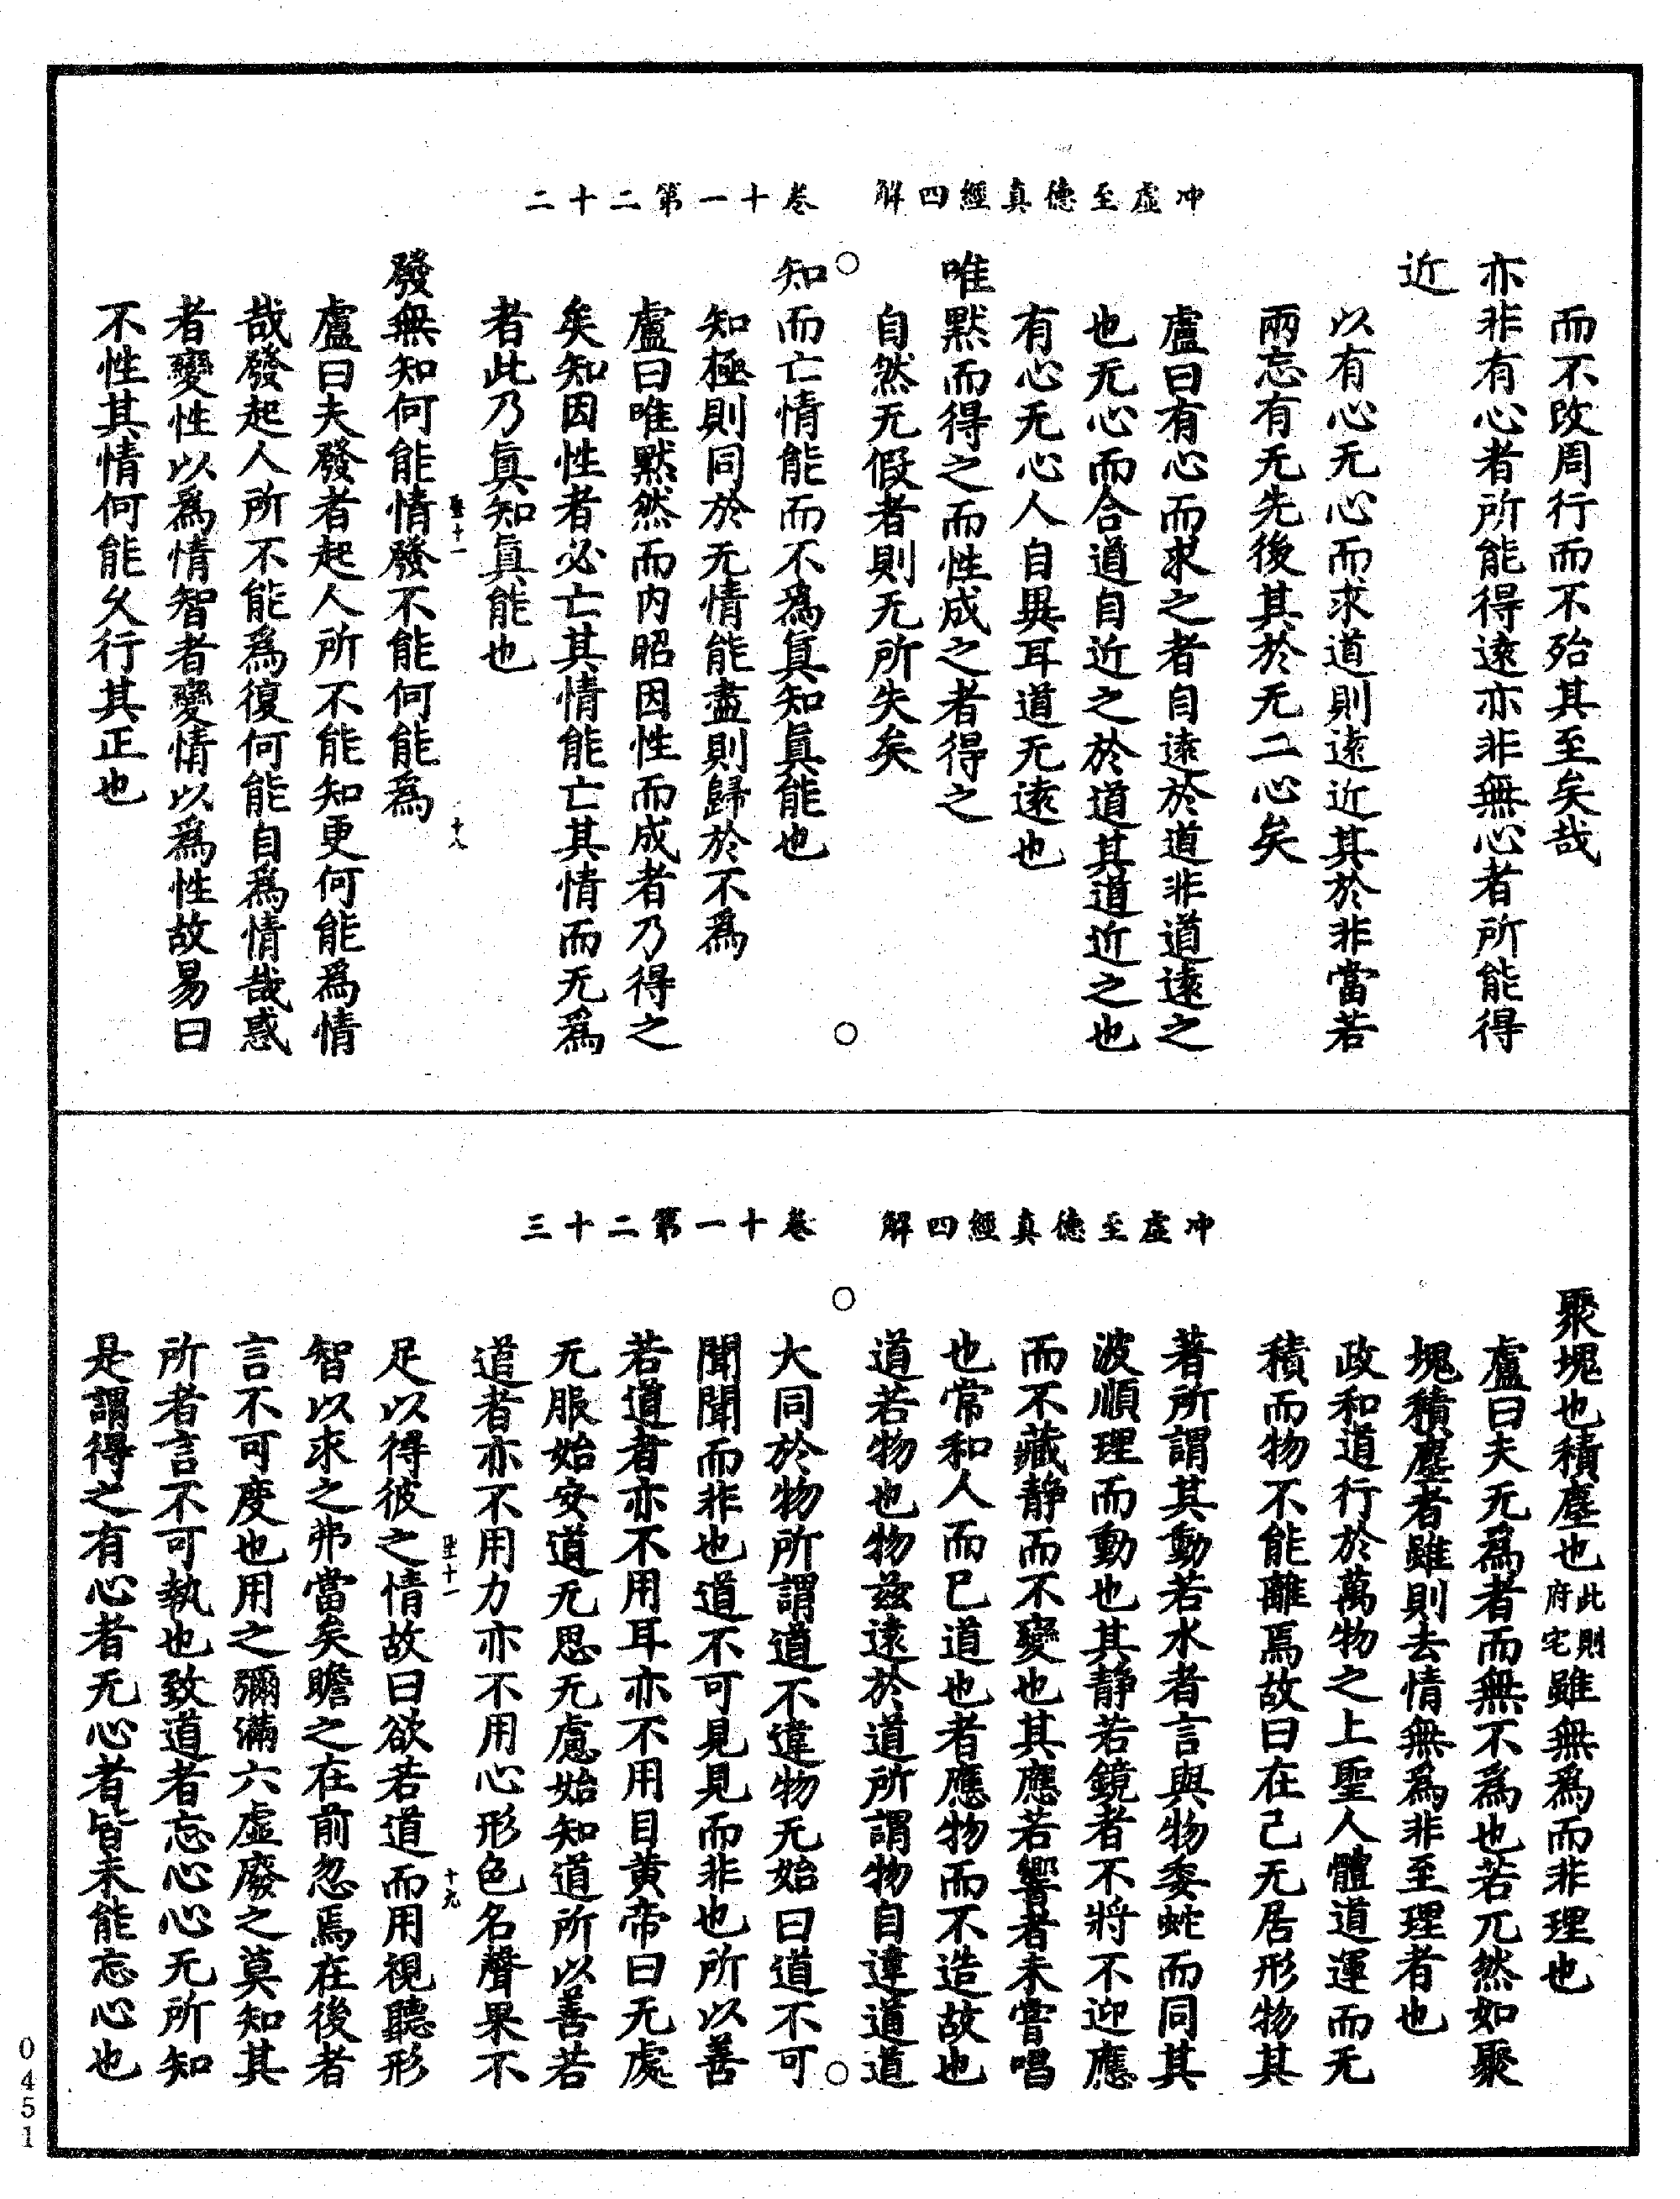 冲虛至德真經四解　卷十一第二十二
而不改周行而不殆其至矣哉
亦非有心者所能得遠亦非無心者所能得
近
以有心无心而求道則遠近其於非當若
兩忘有无先後其於无二心矣
盧曰有心而求之者自遠於道非道遠之
也无心而合道自近之於道其道近之也
有心无心人自異耳道无遠也
唯默而得之而性成之者得之
自然无假者則无所失矣
知而亡情能而不爲眞知眞能也
知極則同於无情能盡則歸於不爲
盧曰唯默然而内昭因性而成者乃得之
矣知因性者必亡其情能亡其情而无爲
者此乃眞知眞能也
聖十一　十八
發無知何能情發不能何能爲
盧曰夫發者起人所不能知更何能爲情
哉發起人所不能爲復何能自爲情哉惑
者變性以爲情智者變情以爲性故易曰
不性其情何能久行其正也
冲虛至德真經四解　卷十一第二十三
聚塊也積塵也此則府宅雖無爲而非理也
盧曰夫无爲者而無不爲也若兀然如聚
塊積塵者雖則去情無爲非至理者也
政和道行於萬物之上聖人體道運而无
積而物不能離焉故曰在己无居形物其
著所謂其動若水者言與物委蛇而同其
波順理而動也其静若鏡者不將不迎應
而不藏静而不變也其應若響者未嘗唱
也常和人而已道也者應物而不造故也
道若物也物茲遠於道所謂物自違道道
大同於物所謂道不違物无始曰道不可
聞聞而非也道不可見見而非也所以善
若道者亦不用耳亦不用目黄帝曰无處
无服始安道无思无慮始知道所以善若
道者亦不用力亦不用心形色名聲果不
聖十一　十九
足以得彼之情故曰欲若道而用視聽形
智以求之弗當矣瞻之在前忽焉在後者
言不可度也用之彌滿六虛廢之莫知其
所者言不可執也致道者忘心心无所知
是謂得之有心者无心者皆未能忘心也
0451